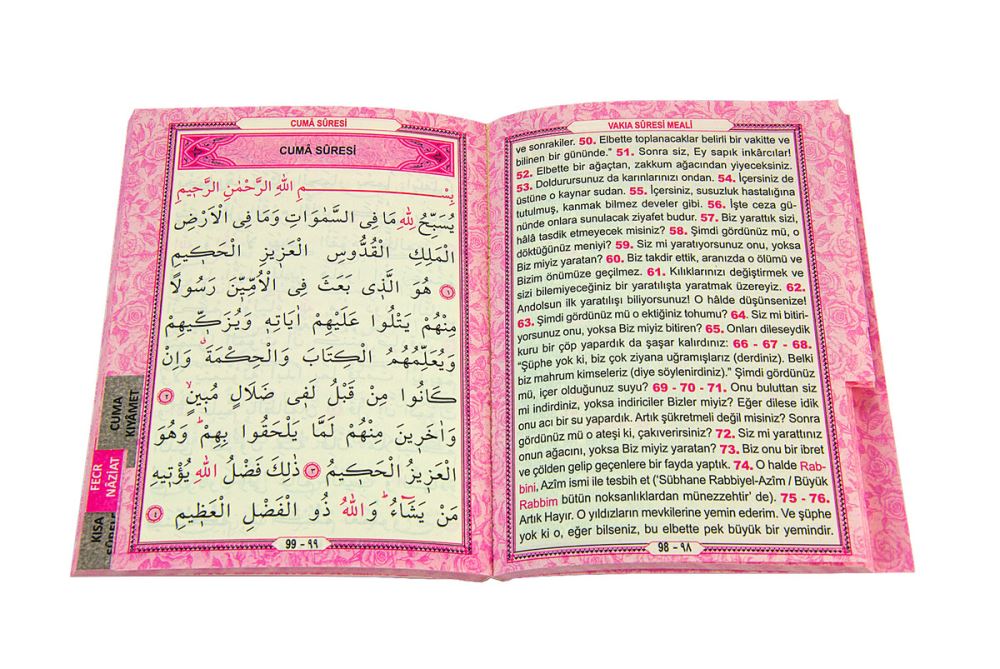 VAKIA SÛRESİ MEALİ
ve sonrakiler. 50. Elbette toplanacaklar belirli bir vakitte ve
bilinen bir gününde." 51. Sonra siz, Ey sapık inkârcılar!
52. Elbette bir ağaçtan, zakkum ağacından yiyeceksiniz.
53. Doldurursunuz da karınlarınızı ondan. 54. İçersiniz de
üstüne o kaynar sudan. 55. İçersiniz, susuzluk hastalığına
tutulmuş, kanmak bilmez develer gibi. 56. İşte ceza gü-
nünde onlara sunulacak ziyafet budur. 57. Biz yarattık sizi,
hâlâ tasdik etmeyecek misiniz? 58. Şimdi gördünüz mü, o
döktüğünüz meniyi? 59. Siz mi yaratıyorsunuz onu, yoksa
Biz miyiz yaratan? 60. Biz takdir ettik, aranızda o ölümü ve
Bizim önümüze geçilmez. 61. Kılıklarınızı değiştirmek ve
sizi bilemiyeceğiniz bir yaratılışta yaratmak üzereyiz. 62.
Andolsun ilk yaratılışı biliyorsunuz! O hâlde düşünsenize!
63. Şimdi gördünüz mü o ektiğiniz tohumu? 64. Siz mi bitiri-
yorsunuz onu, yoksa Biz miyiz bitiren? 65. Onları dileseydik
kuru bir çöp yapardık da şaşar kalırdınız: 66 - 67 - 68.
"Şüphe yok ki, biz çok ziyana uğramışlarız (derdiniz). Belki
biz mahrum kimseleriz (diye söylenirdiniz)." Şimdi gördünüz
mü, içer olduğunuz suyu? 69 - 70 - 71. Onu buluttan siz
mi indirdiniz, yoksa indiriciler Bizler miyiz? Eğer dilese idik
onu acı bir su yapardık. Artık şükretmeli değil misiniz? Sonra
gördünüz mü o ateşi ki, çakıverirsiniz? 72. Siz mi yarattınız
onun ağacını, yoksa Biz miyiz yaratan? 73. Biz onu bir ibret
ve çölden gelip geçenlere bir fayda yaptık. 74. O halde Rab-
bini, Azîm ismi ile tesbih et ('Sübhane Rabbiyel-Azîm / Büyük
Rabbim bütün noksanlıklardan münezzehtir' de). 75 - 76.
Artık Hayır. O yıldızların mevkilerine yemin ederim. Ve şüphe
yok ki o, eğer bilseniz, bu elbette pek büyük bir yemindir.
98 - ٩٨
CUMÂ SÛRESİ
CUMÂ SÛRESİ
بِسْمِ اللهِ الرَّحْمٰنِ الرَّحٖيمِ
يُسَبِّحُ لِلّٰهِ مَا فِى السَّمٰوَاتِ وَمَا فِى الْاَرْضِ
الْمَلِكِ الْقُدُّوسِ الْعَزٖيزِ الْحَكٖيمِ
﴿١﴾ هُوَ الَّذٖى بَعَثَ فِى الْاُمِّيّٖنَ رَسُولًا
مِنْهُمْ يَتْلُوا عَلَيْهِمْ اٰيَاتِهٖ وَيُزَكّٖيهِمْ
وَيُعَلِّمُهُمُ الْكِتَابَ وَالْحِكْمَةَ وَاِنْ
كَانُوا مِنْ قَبْلُ لَفٖى ضَلَالٍ مُبٖينٍ ﴿٢﴾
وَاٰخَرٖينَ مِنْهُمْ لَمَّا يَلْحَقُوا بِهِمْ وَهُوَ
الْعَزٖيزُ الْحَكٖيمُ ﴿٣﴾ ذٰلِكَ فَضْلُ اللهِ يُؤْتٖيهِ
مَنْ يَشَاءُ وَاللهُ ذُو الْفَضْلِ الْعَظٖيمِ ﴿٤﴾
99 - ٩٩
CUMA
KIYÂMET
FECR
NÂZİAT
KISA